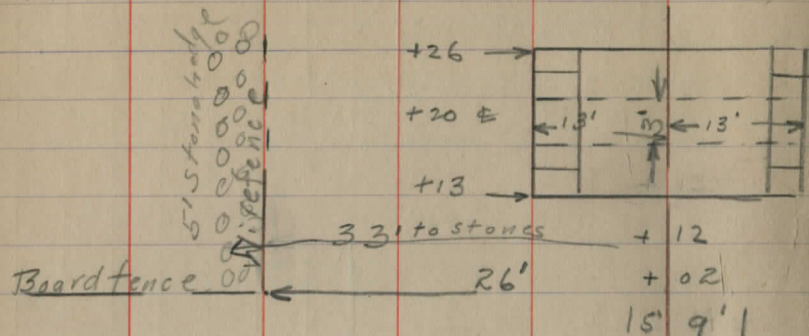 5' Stone hedge
Wirefence
+26
+20 ⅊
13' 3' 13'
+13
33' to stones
+ 12
Board fence
26'
+ 02
15' 9'